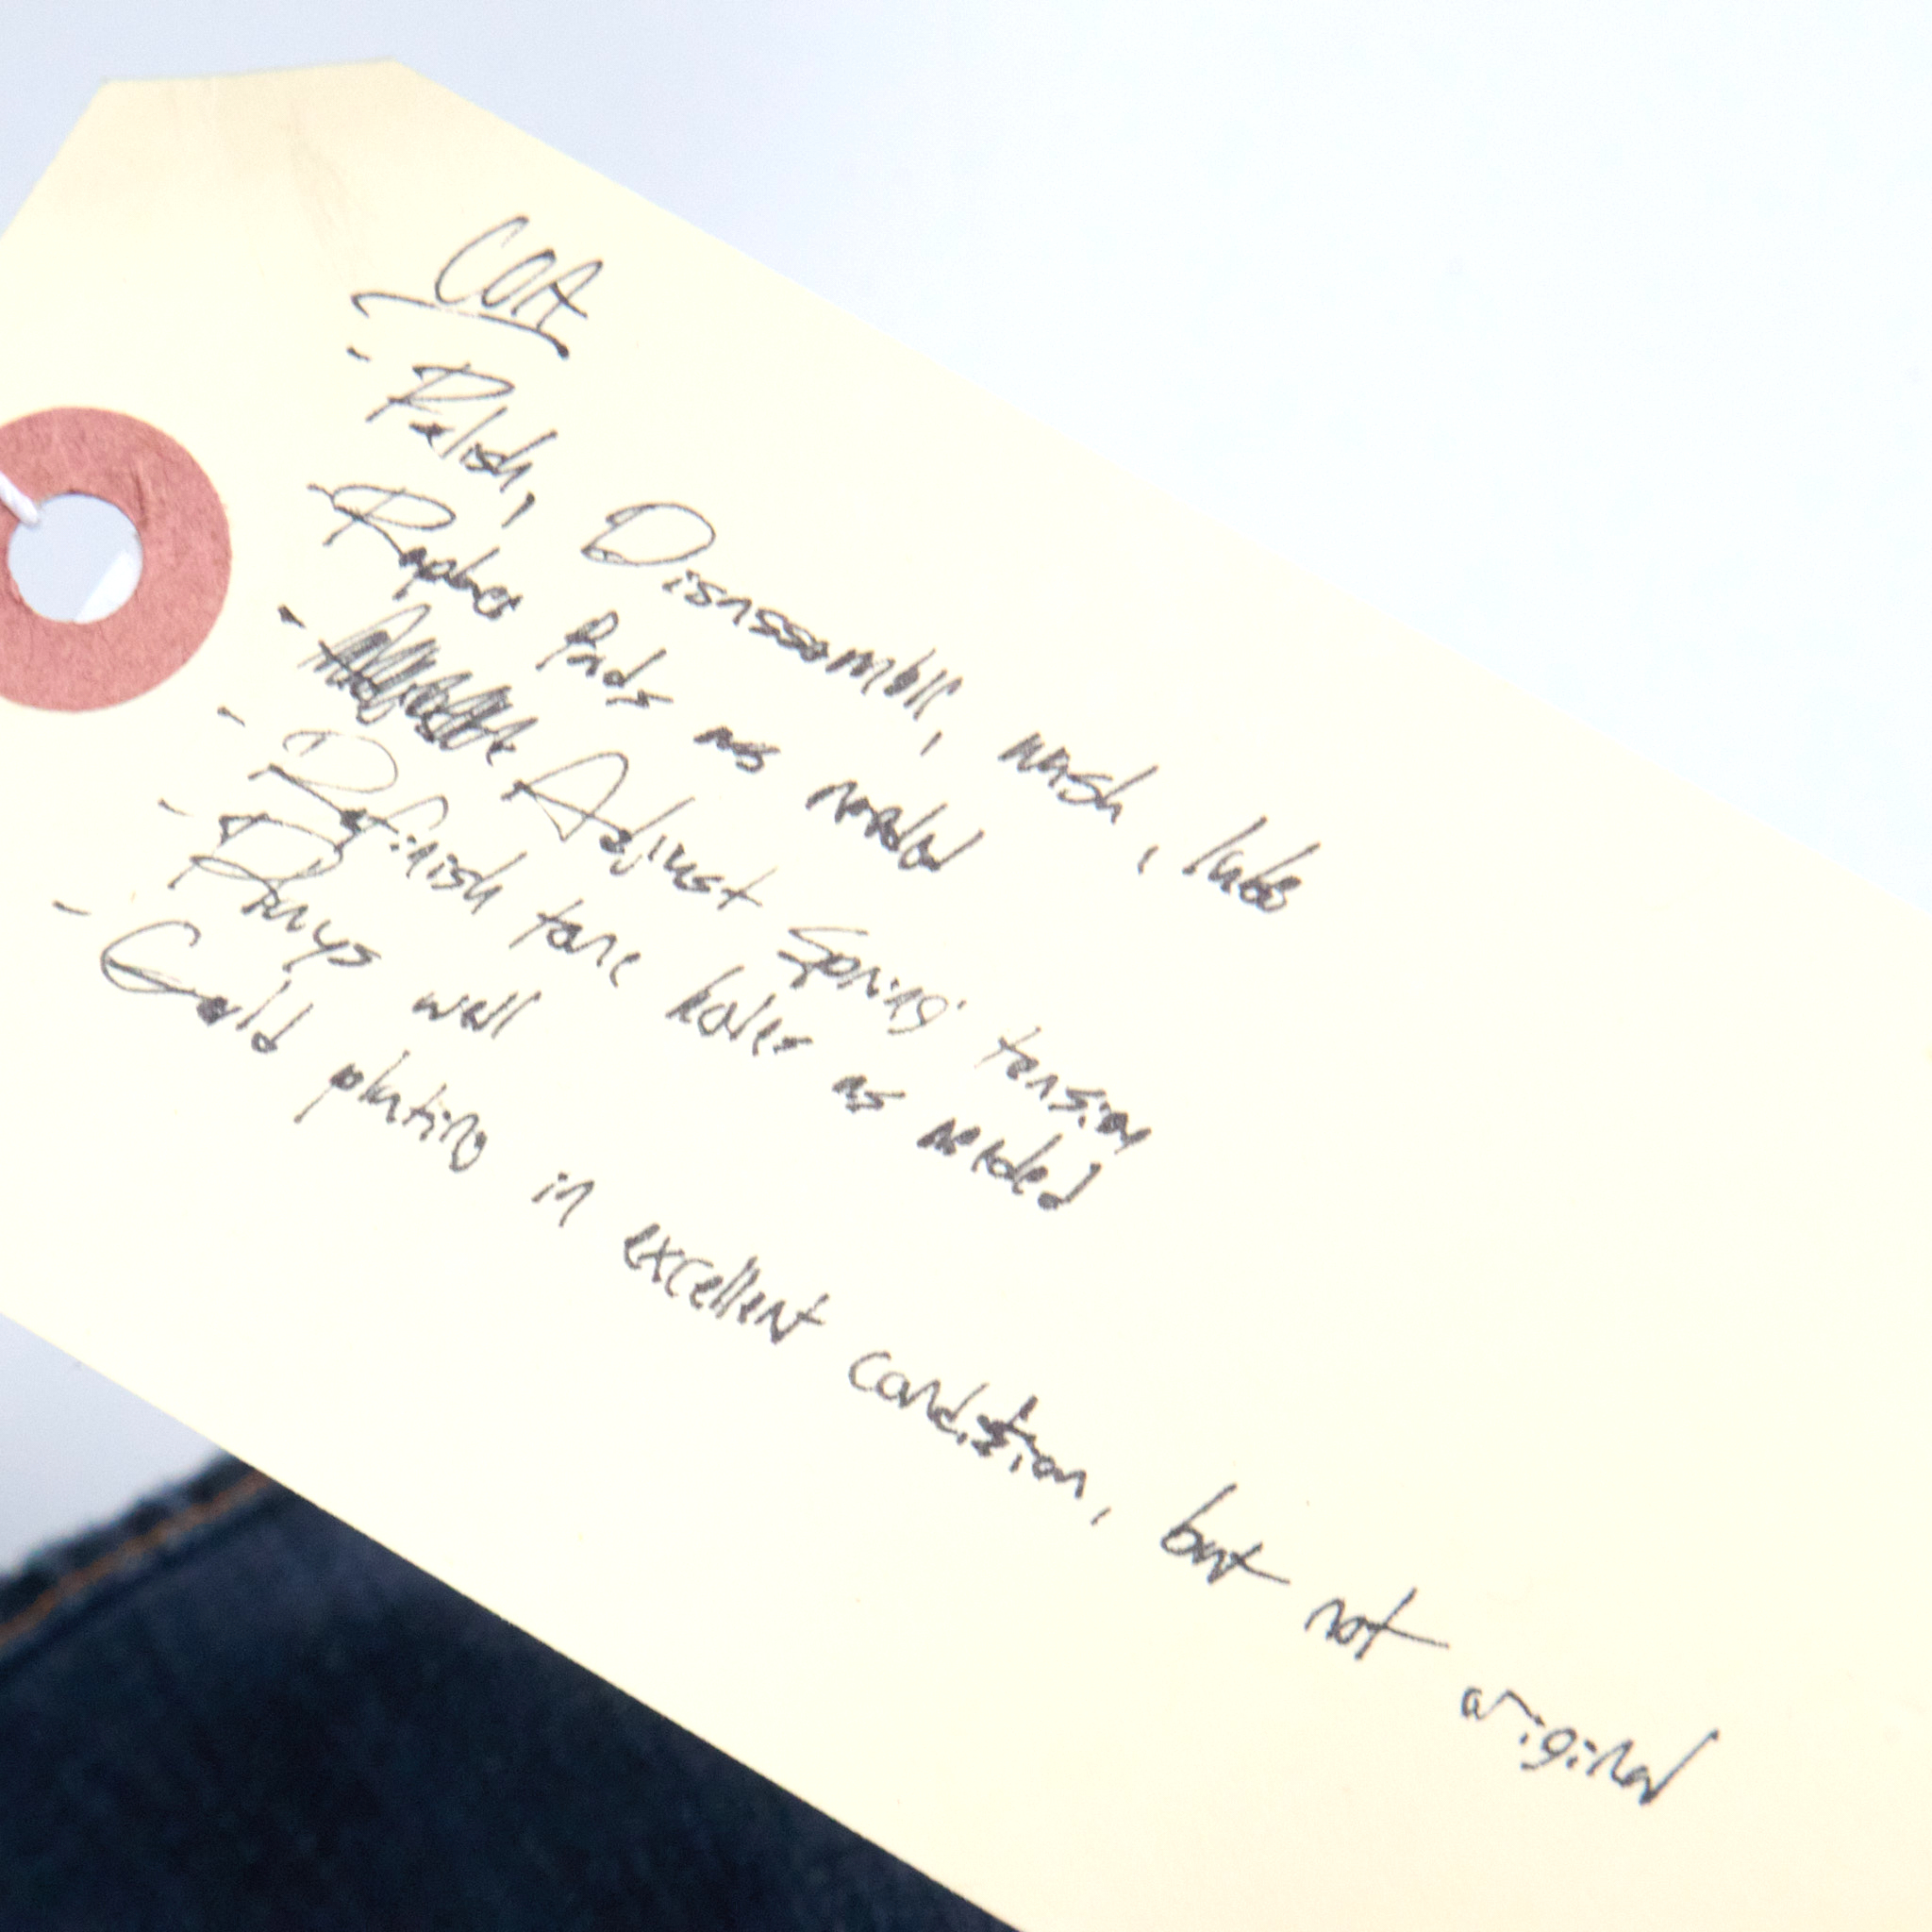 COA
- Polish, Disassembll, wash, lube
Replace Pads as needed
- Adjust Spring tension
- Refinish tone holes as needed
- Plays well
- Gold plating in excellent condition, but not original